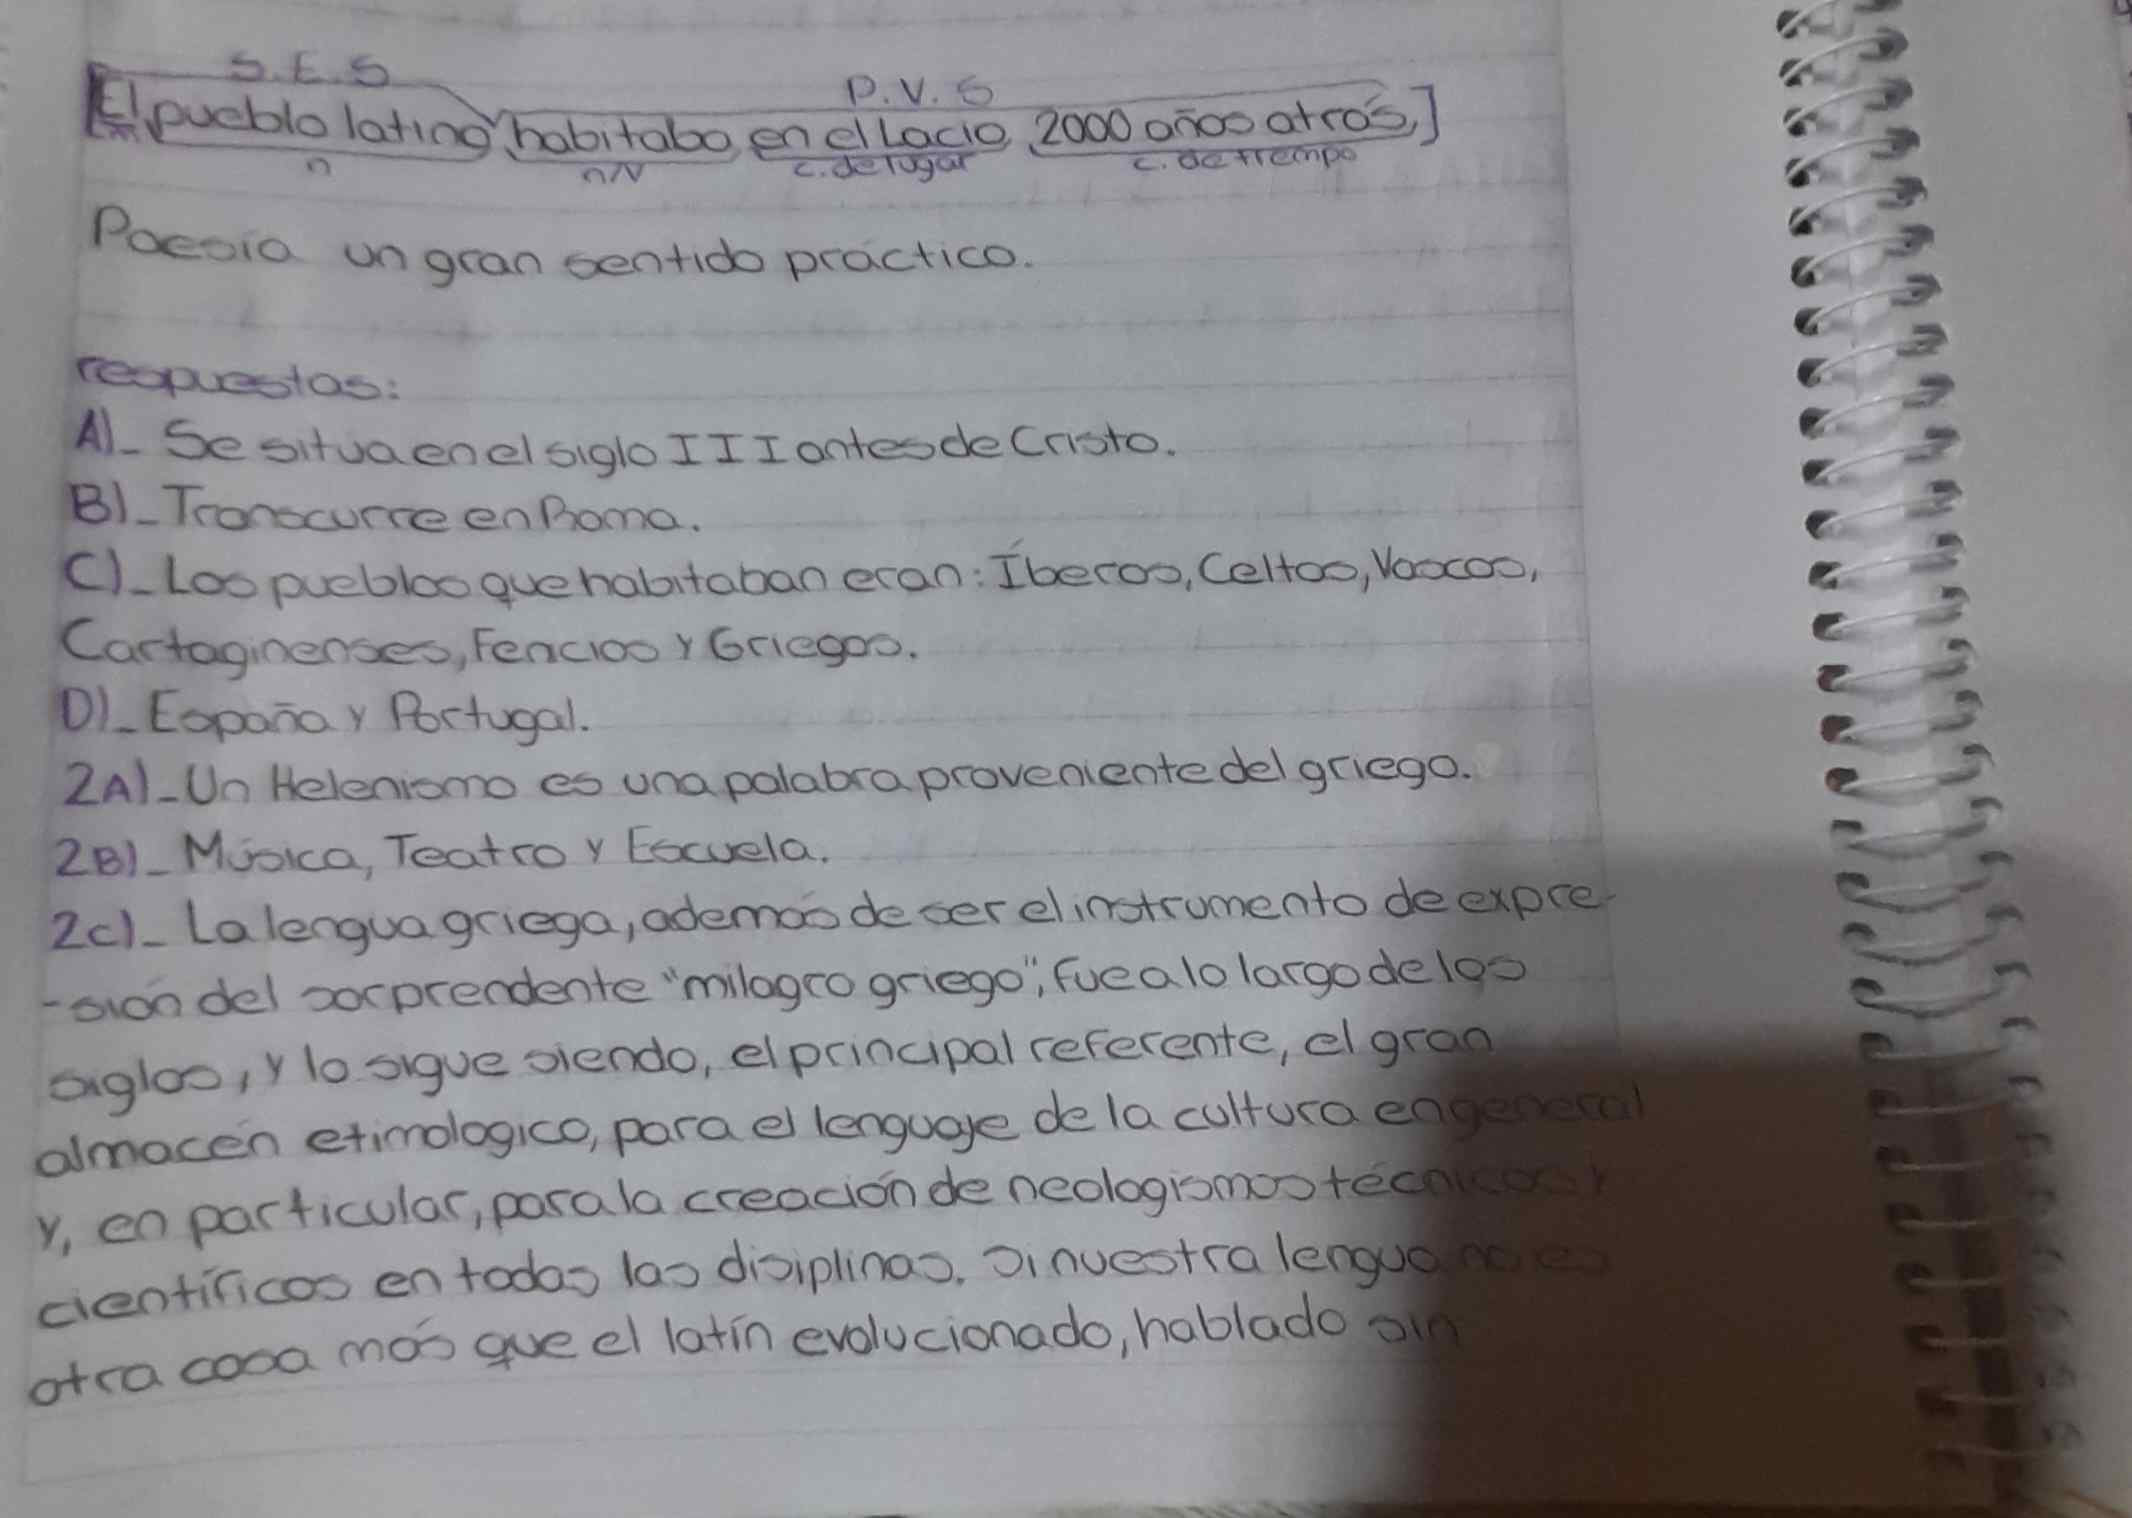 S.E.S
P.V.S
[El pueblo latino, habitaba en el Lacio, 2000 años atrás,]
n n/v c. de lugar c. de tiempo
Poesía un gran sentido práctico.
respuestas:
A)- Se situa en el siglo III antes de Cristo.
B)- Transcurre en Roma.
C)- Los pueblos que habitaban eran: Íberos, Celtas, Vascos,
Cartaginenses, Fencios y Griegos.
D)- España y Portugal.
2A)- Un Helenismo es una palabra proveniente del griego.
2B)- Música, Teatro y Escuela.
2C)- La lengua griega, además de ser el instrumento de expre-
-sión del sorprendente "milagro griego", fue a lo largo de los
siglos, y lo sigue siendo, el principal referente, el gran
almacén etimologico, para el lenguaje de la cultura en general
y, en particular, para la creación de neologismos técnicos y
científicos en todas las disiplinas. Si nuestra lengua no es
otra cosa más que el latín evolucionado, hablado sin